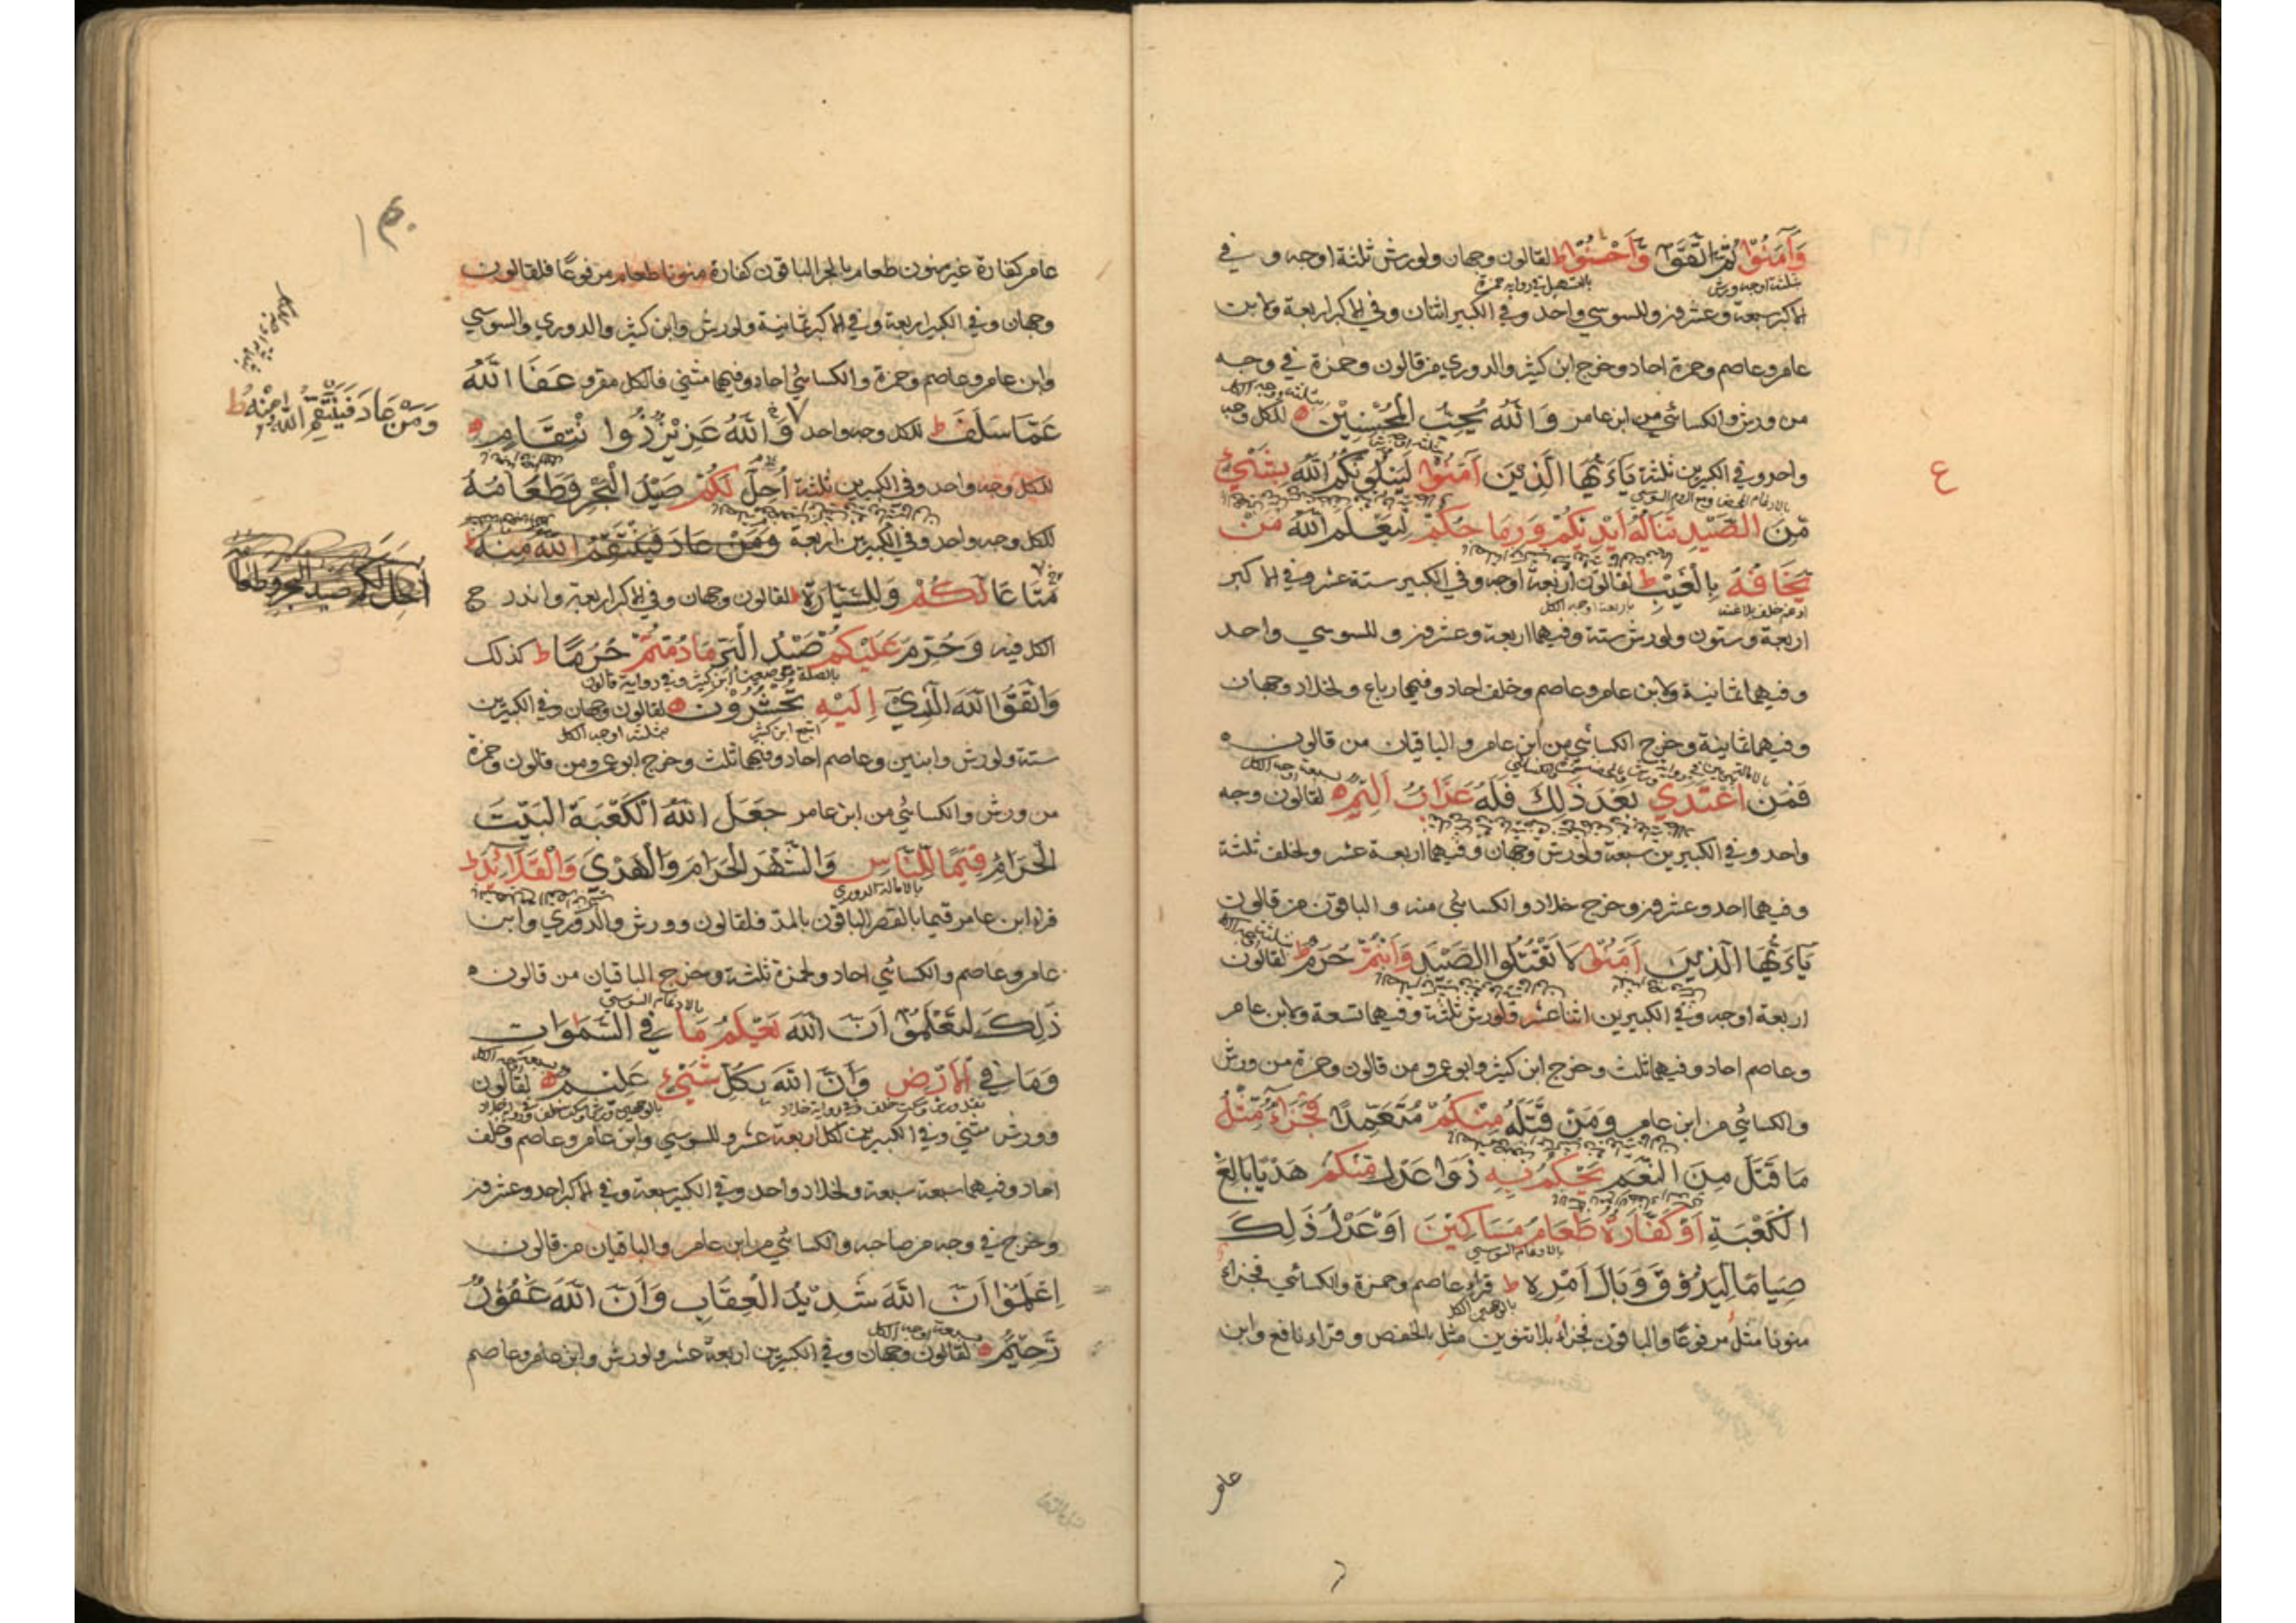 وَآمَنُوا ثُمَّ اتَّقَوْا وَّأَحْسَنُوا ط لقالون وجهان ولورش ثلثة اوجه و في
ثلثة اوجه ورش بالتسهيل في رواية حمزة
الاكبر سبعة وعشرون وللسوسي واحد وفي الكبير اثنان وفي الاكبر اربعة ولابن
عامر وعاصم وحمزة احاد وخرج ابن كثير والدوري من قالون وحمزة في وجه
من ورش والكسائي من ابن عامر وَاللّٰهُ يُحِبُّ الْمُحْسِنِيْنَ للكل وجه
واحد وفي الكبيرين ثلثة يَآءَيُّهَا الَّذِيْنَ آمَنُوْا لَيَبْلُوَنَّكُمُ اللّٰهُ بِشَيْءٍ
ع
مِّنَ الصَّيْدِ تَنَالُهُ اَيْدِيْكُمْ وَرِمَاحُكُمْ لِيَعْلَمَ اللّٰهُ مَنْ
يَّخَافُهُ بِالْغَيْبِ ط لقالون اربعة اوجه وفي الكبير ستة عشر وفي الاكبر
ادغم خلف بلا غنة باربعة اوجه الكل
اربعة وستون ولورش ستة وفيهما اربعة وعشرون وللسوسي واحد
وفيهما ثمانية ولابن عامر وعاصم وخلف احاد وفيهما رباع ولخلاد وجهان
وفيهما ثمانية وخرج الكسائي من ابن عامر والباقيان من قالون
فَمَنِ اعْتَدٰي بَعْدَ ذٰلِكَ فَلَهُ عَذَابٌ اَلِيْمٌ لقالون وجه
واحد وفي الكبيرين سبعة ولورش وجهان وفيهما اربعة عشر ولخلف ثلثة
وفيهما احد وعشرون وخرج خلاد والكسائي منه والباقون من قالون
يَآءَيُّهَا الَّذِيْنَ آمَنُوْا لَا تَقْتُلُوا الصَّيْدَ وَاَنْتُمْ حُرُمٌ ط لقالون
اربعة اوجه وفي الكبيرين اثنا عشر ولورش ثلثة وفيهما تسعة ولابن عامر
وعاصم احاد وفيهما ثلث وخرج ابن كثير وابو عمرو من قالون وحمزة من ورش
والكسائي من ابن عامر وَمَنْ قَتَلَهُ مِنْكُمْ مُتَعَمِّدًا فَجَزَاءُ مِثْلُ
مَا قَتَلَ مِنَ النَّعَمِ يَحْكُمُ بِهِ ذَوَا عَدْلٍ مِّنْكُمْ هَدْيًا بَالِغَ
الْكَعْبَةِ اَوْ كَفَّارَةٌ طَعَامُ مَسَاكِيْنَ اَوْ عَدْلُ ذٰلِكَ
بالادغام السوسي
صِيَامًا لِّيَذُوْقَ وَبَالَ اَمْرِهِ ط قراء عاصم وحمزة والكسائي فجزاء
بالوجهين الكل
منونا مثل مرفوعا والباقون فجزاء بلا تنوين مثل بالخفض وقراء نافع وابن
عامر
١٤٠
عامر كفارة غير منون طعام بالجر الباقون كفارة منونا طعام مرفوعا فلقالون
وجهان وفي الكبير اربعة وفي الاكبر ثمانية ولورش وابن كثير والدوري والسوسي
وابن عامر وعاصم وحمزة والكسائي احاد وفيهما مثني فالكل مقرو عَفَا اللّٰهُ
عَمَّا سَلَفَ ط للكل وجه واحد وَاللّٰهُ عَزِيْزٌ ذُو انْتِقَامٍ
وَمَنْ عَادَ فَيَنْتَقِمُ اللّٰهُ مِنْهُ ط
للكل وجه واحد وفي الكبيرين ثلثة اُحِلَّ لَكُمْ صَيْدُ الْبَحْرِ وَطَعَامُهُ
للكل وجه واحد وفي الكبيرين اربعة وَمَنْ عَادَ فَيَنْتَقِمُ اللّٰهُ مِنْهُ ط
احل لكم صيد البحر وطعامه
مَتَاعًا لَّكُمْ وَلِلسَّيَّارَةِ لقالون وجهان وفي الاكبر اربعة واندرج
الكل فيه وَحُرِّمَ عَلَيْكُمْ صَيْدُ الْبَرِّ مَا دُمْتُمْ حُرُمًا ط كذلك
وَاتَّقُوا اللّٰهَ الَّذِيْ اِلَيْهِ تُحْشَرُوْنَ لقالون وجهان وفي الكبيرين
اشبع ابن كثير بثلثة اوجه الكل
ستة ولورش وابنين وعاصم احاد وفيهما ثلث وخرج ابو عمرو من قالون وحمزة
من ورش والكسائي من ابن عامر جَعَلَ اللّٰهُ الْكَعْبَةَ الْبَيْتَ
الْحَرَامَ قِيٰمًا لِّلنَّاسِ وَالشَّهْرَ الْحَرَامَ وَالْهَدْيَ وَالْقَلَائِدَ ط
بالامالة الدوري
قراء ابن عامر قيما بالقصر الباقون بالمد فلقالون وورش والدوري وابن
عامر وعاصم والكسائي احاد ولحمزة ثلثة وخرج الباقيان من قالون
بالادغام السوسي
ذٰلِكَ لِتَعْلَمُوْا اَنَّ اللّٰهَ يَعْلَمُ مَا فِي السَّمَوَاتِ
وَمَا فِي الْاَرْضِ وَاَنَّ اللّٰهَ بِكُلِّ شَيْءٍ عَلِيْمٌ لقالون
وورش مثني وفي الكبيرين لكل اربعة عشر وللسوسي وابن عامر وعاصم وخلف
احاد وفيهما سبعة سبعة ولخلاد واحد وفي الكبير سبعة وفي الاكبر احد وعشرون
وخرج في وجه من صاحبه والكسائي من ابن عامر والباقيان من قالون
اِعْلَمُوْا اَنَّ اللّٰهَ شَدِيْدُ الْعِقَابِ وَاَنَّ اللّٰهَ غَفُوْرٌ
سبعة اوجه الكل
رَّحِيْمٌ لقالون وجهان وفي الكبيرين اربعة عشر ولورش وابن عامر وعاصم